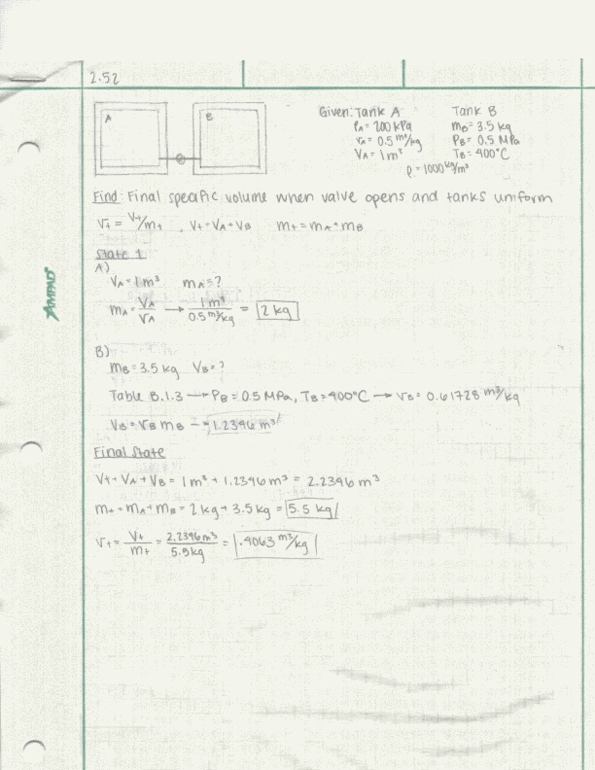 2.52
A
B
Given: Tank A Tank B
PA = 200 kPa mB = 3.5 kg
vA = 0.5 m³/kg PB = 0.5 MPa
VA = 1 m³ TB = 400°C
ρ = 1000 kg/m³
Find: Final specific volume when valve opens and tanks uniform
v+ = V+/m+ , V+ = VA + VB m+ = mA + mB
State 1
A)
VA = 1 m³ mA = ?
mA = VA/vA → 1 m³/0.5 m³/kg = 2 kg
B)
mB = 3.5 kg VB = ?
Table B.1.3 → PB = 0.5 MPa, TB = 400°C → vB = 0.61728 m³/kg
VB = vB mB → 1.2396 m³
Final State
V+ = VA + VB = 1 m³ + 1.2396 m³ = 2.2396 m³
m+ = mA + mB = 2 kg + 3.5 kg = 5.5 kg
v+ = V+/m+ = 2.2396 m³/5.5 kg = .4063 m³/kg
AMPAD